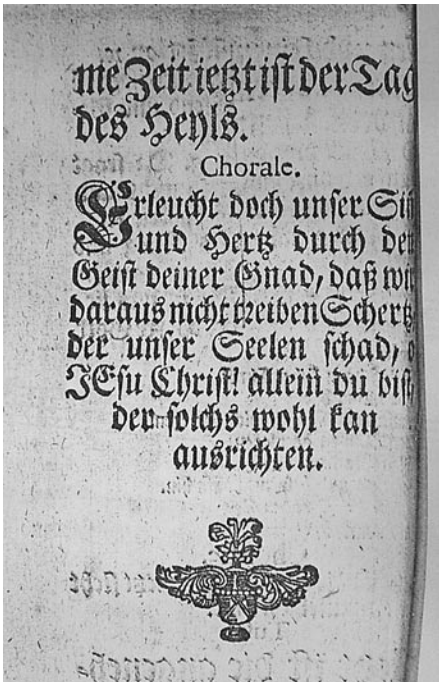 me Zeit ietzt ist der Tag
des Heyls.
Chorale.
Erleucht doch unser
und Hertz durch
Geist deiner Gnad, daß
daraus nicht treiben Schertz
der unser Seelen schad,
JEsu Christ! allein du bist
der solchs wohl kan
ausrichten.